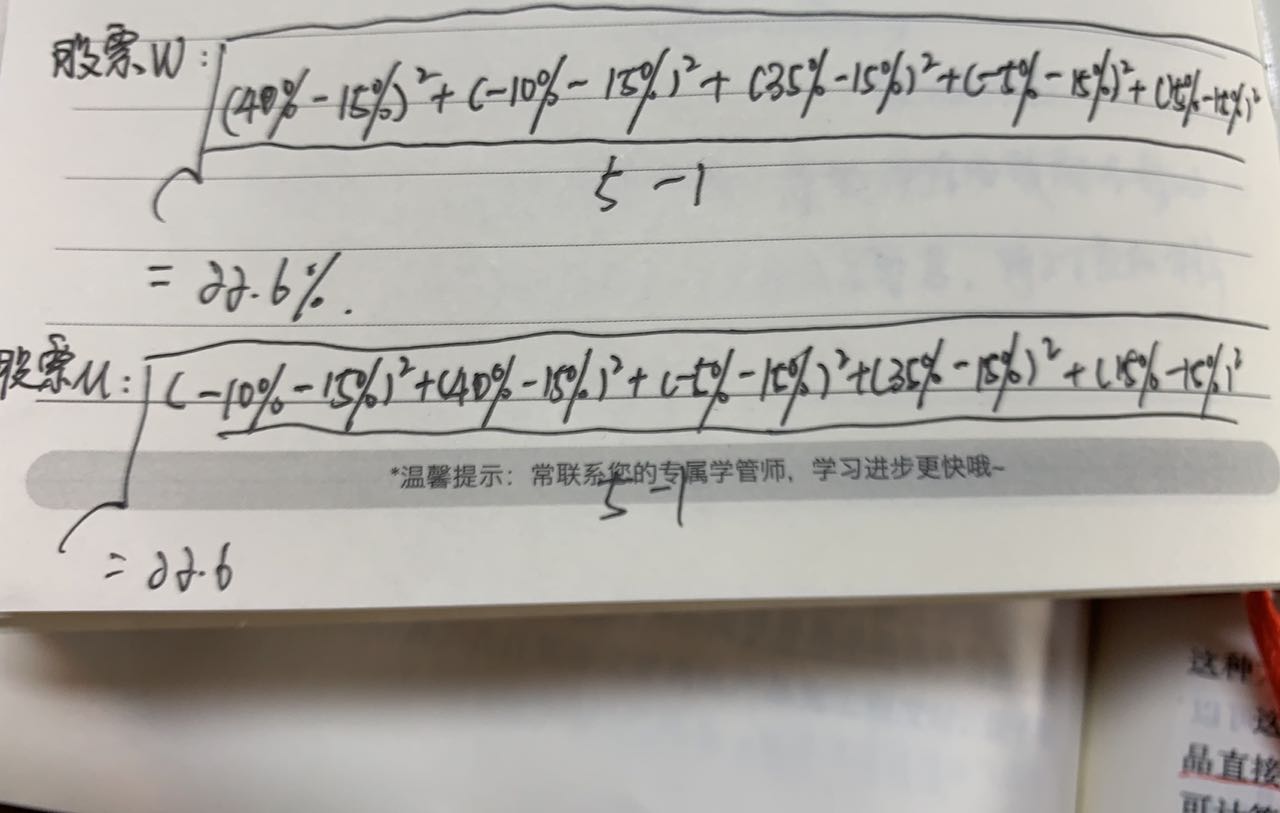 股票W: √
(40%-15%)²+(-10%-15%)²+(35%-15%)²+(-5%-15%)²+(15%-15%)²
5-1
=22.6%.
股票M: √
(-10%-15%)²+(40%-15%)²+(-5%-15%)²+(35%-15%)²+(15%-15%)²
*温馨提示：常联系您的专属学管师，学习进步更快哦~
5-1
=22.6
这种
可以 这
品直接